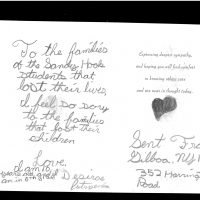 To the families
of the Sandy Hook
students that
lost their lives,
I feel so sorry
to the families
that lost their
children
Love,
Desiree
I am 10
years old and I
am in 5th grade
Expressing deepest sympathy,
and hoping you will find comfort
in knowing others care
and are near in thought today.
Sent
Gilboa, NY
352
Road